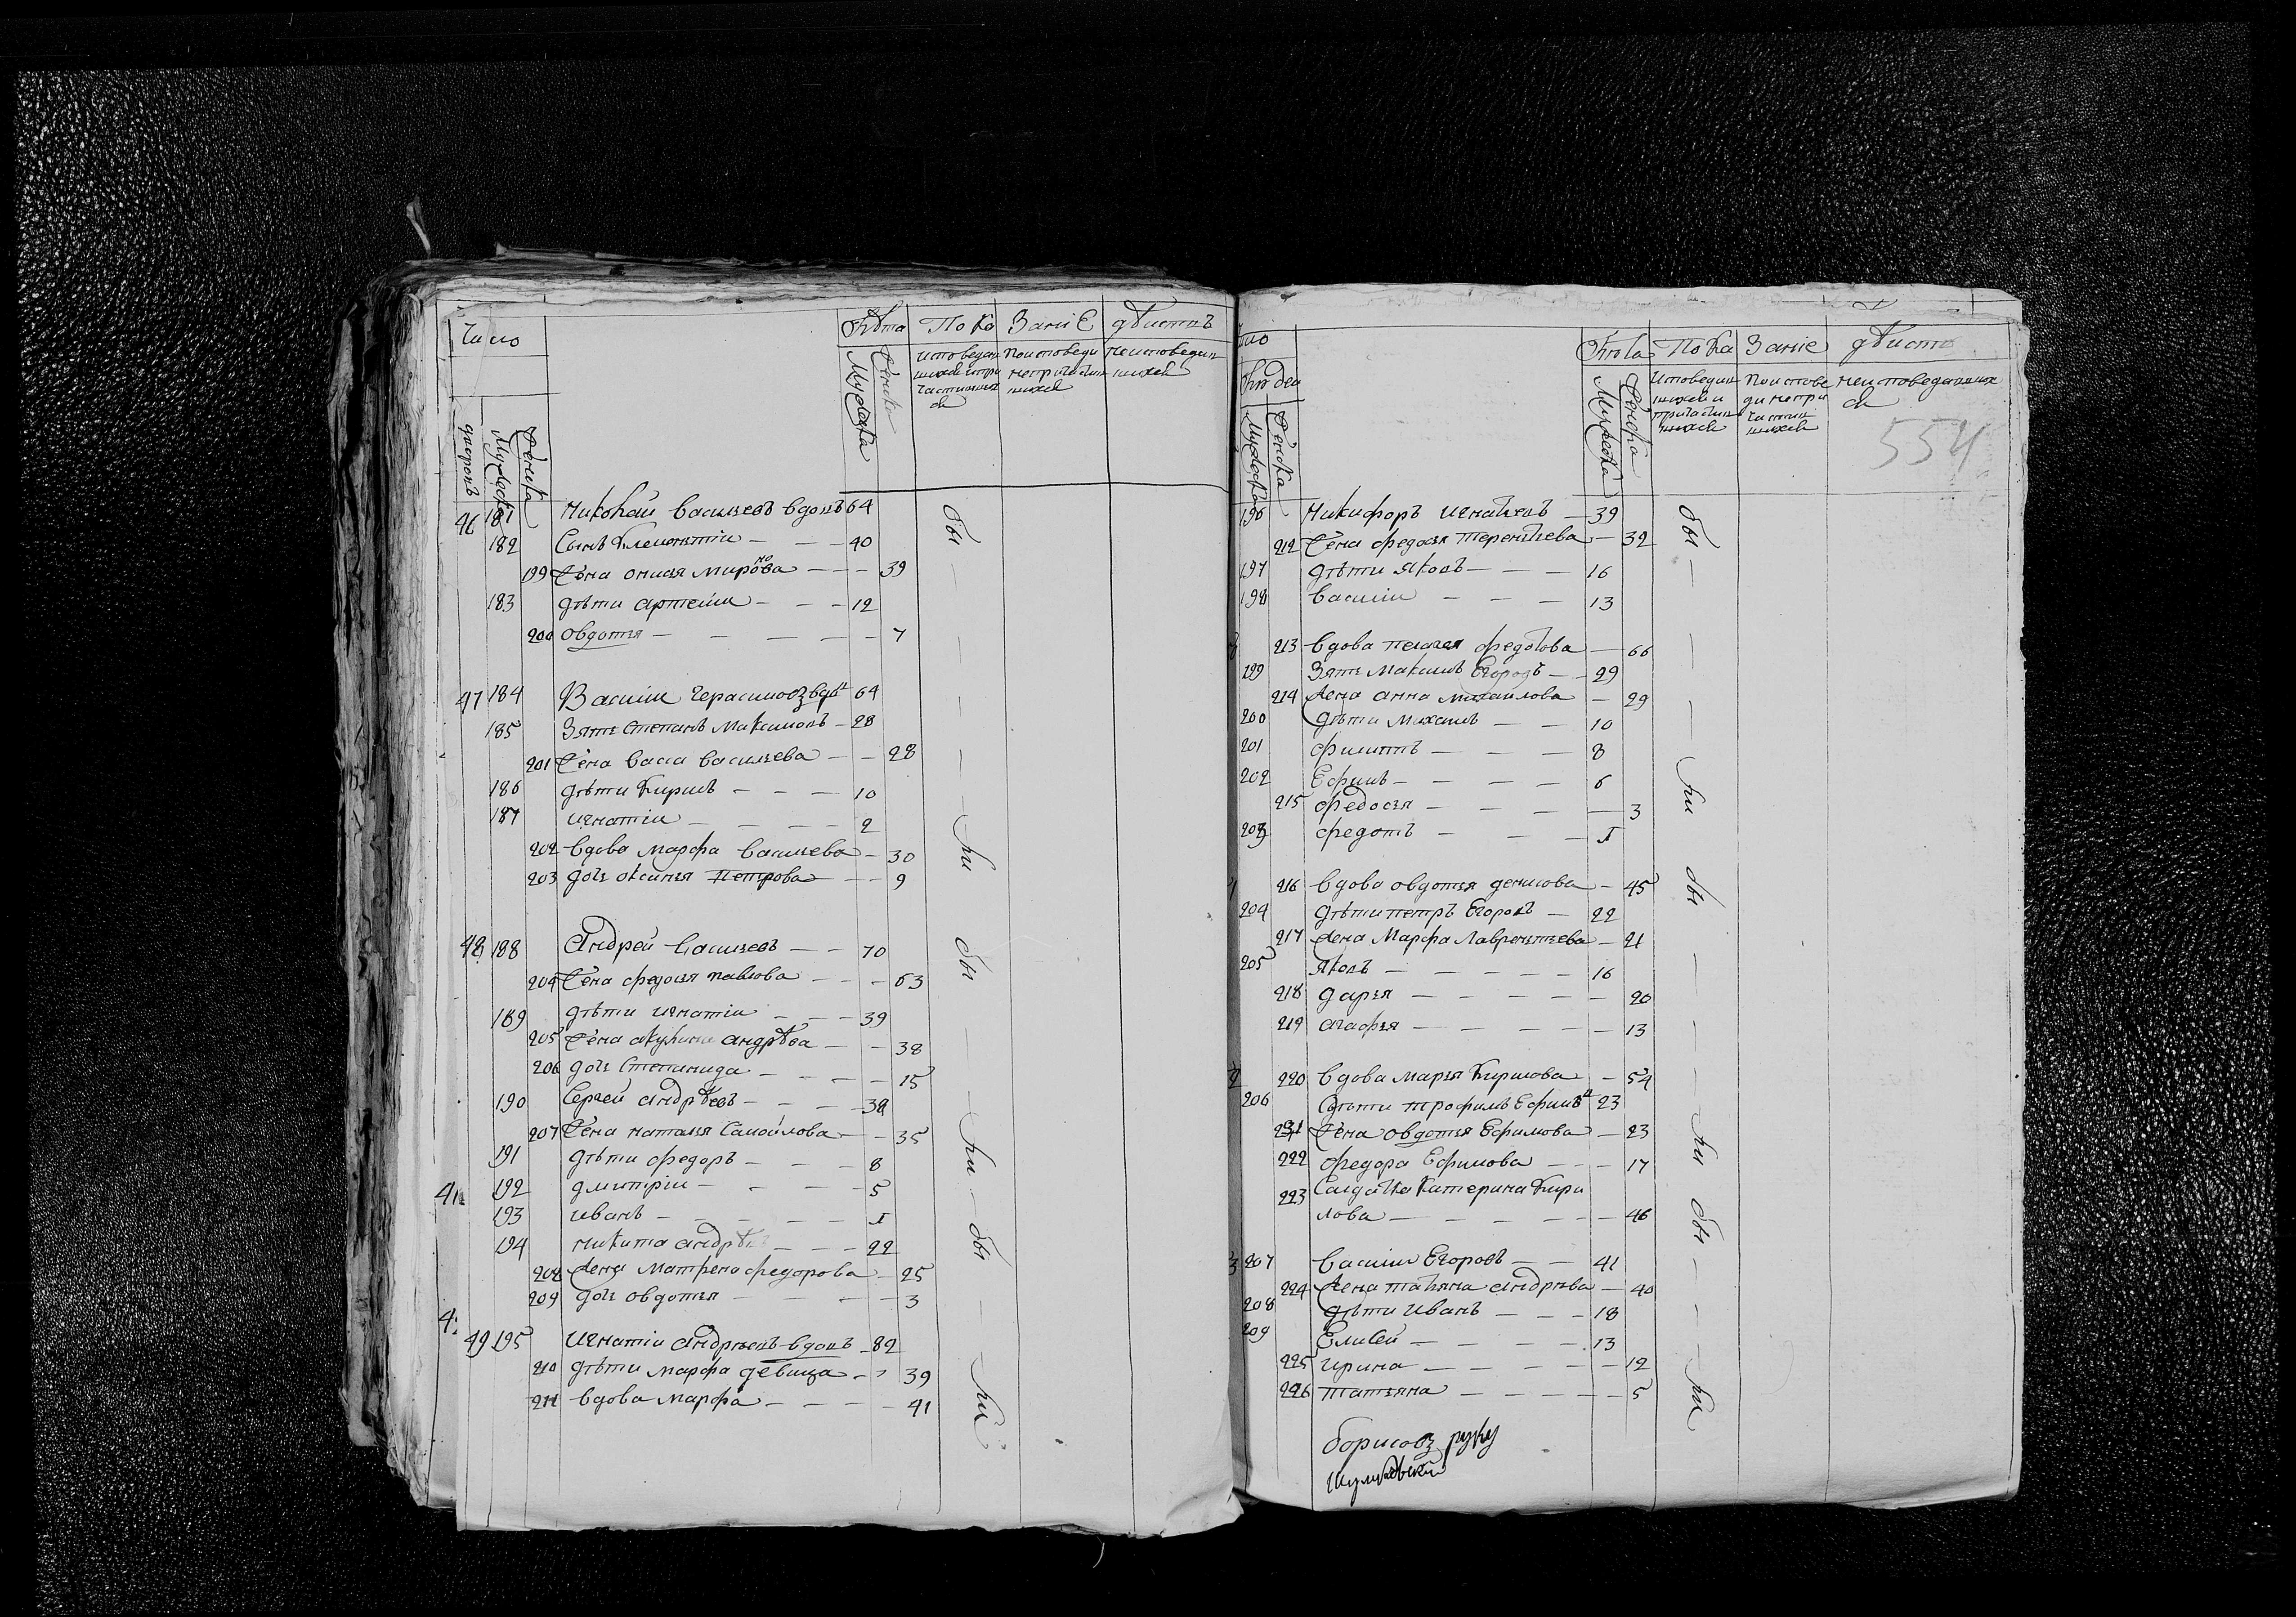 Число
Лѣта Показаніе дѣйствъ
исповедав Поисповеди Неисповедав
шихся и при непричастив шихся
частивших шихся
ся
дворовъ Мужеска Женска Мужеска Женска
46 181 Николай Васильевъ вдовъ 64
182 Сынъ Клементіи — — — 40
199 Жена онисья миронова — — — 39
183 дѣти артемии — — — 12
200 овдотья — — — — — 7
47 184 Василии Герасимовъ вдв 64
185 Зять Степанъ Максимовъ — 28
201 Жена васса васильева — — 28
186 дѣти Кирилъ — — — 10
187 игнатіи — — — — 2
202 вдова марфа васильева — 30
203 дочь оксинья Петрова — — 9
48 188 Андрей васильевъ — — 70
204 Жена федосья павлова — — — 63
189 дѣти игнатіи — — — 39
205 Жена акулина андрѣева — — 38
206 дочь Степанида — — — — 15
190 Сергей андрѣевъ — — — 38
207 Жена наталья Самойлова — — 35
191 дѣти федоръ — — — 8
192 дмитріи — — — 5
193 иванъ — — — — — 1
194 никита андрѣ — — — 22
208 Жена Матрена федорова — 25
209 дочь овдотья — — — — 3
49 195 Игнатіи андрѣевъ вдовъ — 82
210 дѣти марфа девица — — 39
211 вдова марфа — — — — 41
бы — ли
бы — ли
бы — ли
Число
Лѣта Показаніе дѣйств
людеи
Исповедав Поиспове Неисповедавших
шихся и ди непри ся
причастив частив
шихся шихся
554
Мужеска Женска Мужеска Женска
196 Никифоръ игнатьевъ — 39
212 Жена федосья терентьева — 32
197 дѣти яковъ — — — 16
198 василии — — — 13
213 вдова пелагея федотова — 66
199 Зять Максимъ Егоровъ — — 29
214 Жена анна михаилова — 29
200 дѣти Михаилъ — — 10
201 филиппъ — — — 8
202 Ефимъ — — — — 6
215 федосья — — — — 3
203 федотъ — — — 1
216 вдова овдотья денисова — 45
204 дѣти петръ Егоровъ — 22
217 Жена Марфа Лаврентьева — 21
205 яковъ — — — — — 16
218 дарья — — — — — 20
219 агафья — — — — — 13
220 вдова марья Кирилова — 54
206 дѣти трофимъ Ефимъв 23
221 Жена овдотья Ефимова — 23
222 федора Ефимова — — — 17
223 Салдатка Катерина Кири
лова — — — — — — 46
207 Василии Егоровъ — — 41
224 Жена татьяна андрѣва — 40
208 дѣти Иванъ — — — 18
209 Елисеи — — — — — 13
225 ирина — — — — — 12
226 татьяна — — — — — 5
бы — ли
бы — ли
бы — ли
борисовъ руку